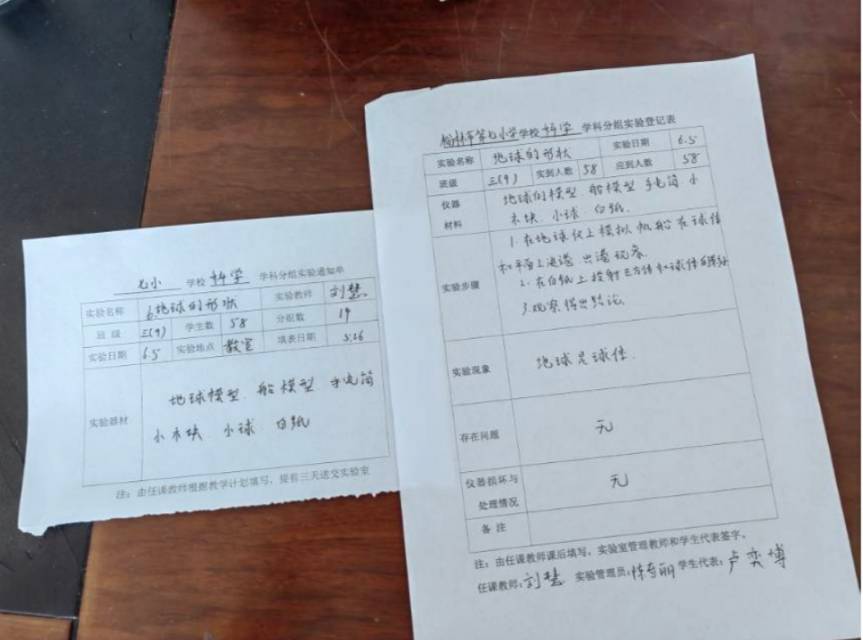 七小 学校 科学 学科分组实验通知单
实验名称 6.地球的形状 实验教师 刘慧
班 级 三(9) 学生数 58 分组数 19
实验日期 6.5 实验地点 教室 填表日期 5.26
实验器材
地球模型 船模型 手电筒
小木块 小球 白纸
注：由任课教师根据教学计划填写，提前三天送交实验室
榆林市第七小学学校 科学 学科分组实验登记表
实验名称 地球的形状 实验日期 6.5
班级 三(9) 实到人数 58 应到人数 58
仪器材料
地球的模型 船模型 手电筒 小
木块 小球 白纸.
实验步骤
1. 在地球仪上模拟帆船在球体
和平面上进港 出港现象
2. 在白纸上投射正方体和球体的影子
3. 观察得出结论.
实验现象 地球是球体.
存在问题 无
仪器损坏与处理情况 无
备 注
注：由任课教师课后填写，实验室管理教师和学生代表签字。
任课教师：刘慧 实验管理员： 学生代表：卢奕博